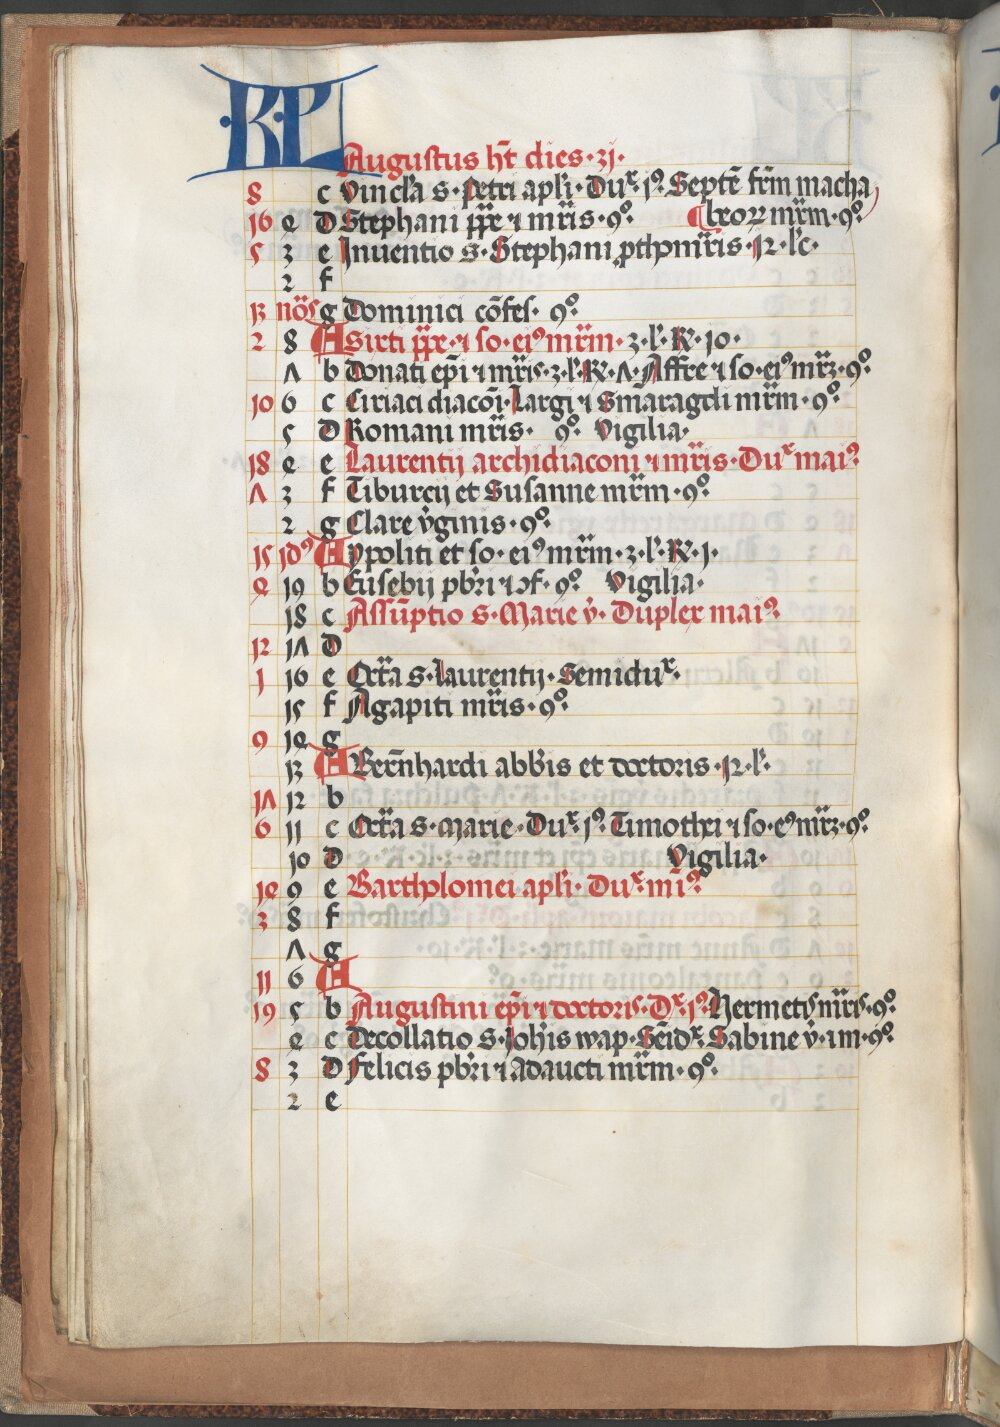 KL
Augustus ht dies · 31 ·
8 c Vincla s · Petri apli · Dux · 19 · Septe frm macha
16 4 D Stephani ppe ⁊ mris · 9o · ¶ beoꝝ mrm · 9o
5 3 e Inuentio s · Stephani pthomris · 12 · lc ·
2 f
13 nos g Dominici cofes · 9o
2 8 A Sixti ppe · ⁊ so · ei9 mrm · 3 · l · R · 10 ·
7 b Donati epi ⁊ mris · 3 · l · R · 7 · Affre ⁊ so · ei9 mrz · 9o
10 6 c Ciriaci diaconi · Largi ⁊ Smaragdi mrm · 9o
5 D Romani mris · 9o Vigilia ·
18 4 e Laurentij archidiaconi ⁊ mris · Dux mai9
7 3 f Tiburcij et Susanne mrm · 9o
2 g Clare vginis · 9o
15 id9 A ypoliti et so · ei9 mrm · 3 · l · R · 1 ·
4 19 b Eusebij pbri ⁊ ɔf · 9o Vigilia ·
18 c Assuptio s · Marie v · Duplex mai9
12 17 D
1 16 e Octa s · Laurentij · Semidux ·
15 f Agapiti mris · 9o
9 14 g
13 A Bernhardi abbis et doctoris · 12 · l ·
17 12 b
6 11 c Octa s · marie · Dux · 19 · Timothei ⁊ so · e9 mrz · 9o
10 D Vigilia ·
14 9 e Bartholomei apli · Dux · mi9
3 8 f
7 g
11 6 A
19 5 b Augustini epi ⁊ doctoris · Dx · 19 Hermetis mris · 9o
4 c Decollatio s · Johis wap · Semidx · Sabine v · ⁊ m · 9o
8 3 D Felicis pbri ⁊ Adaucti mrm · 9o
2 e